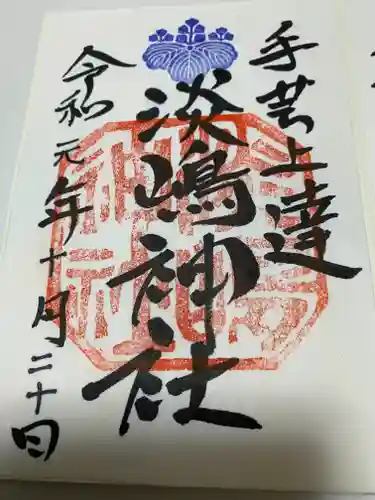 手芸上達
淡嶋神社
令和元年十月二十日